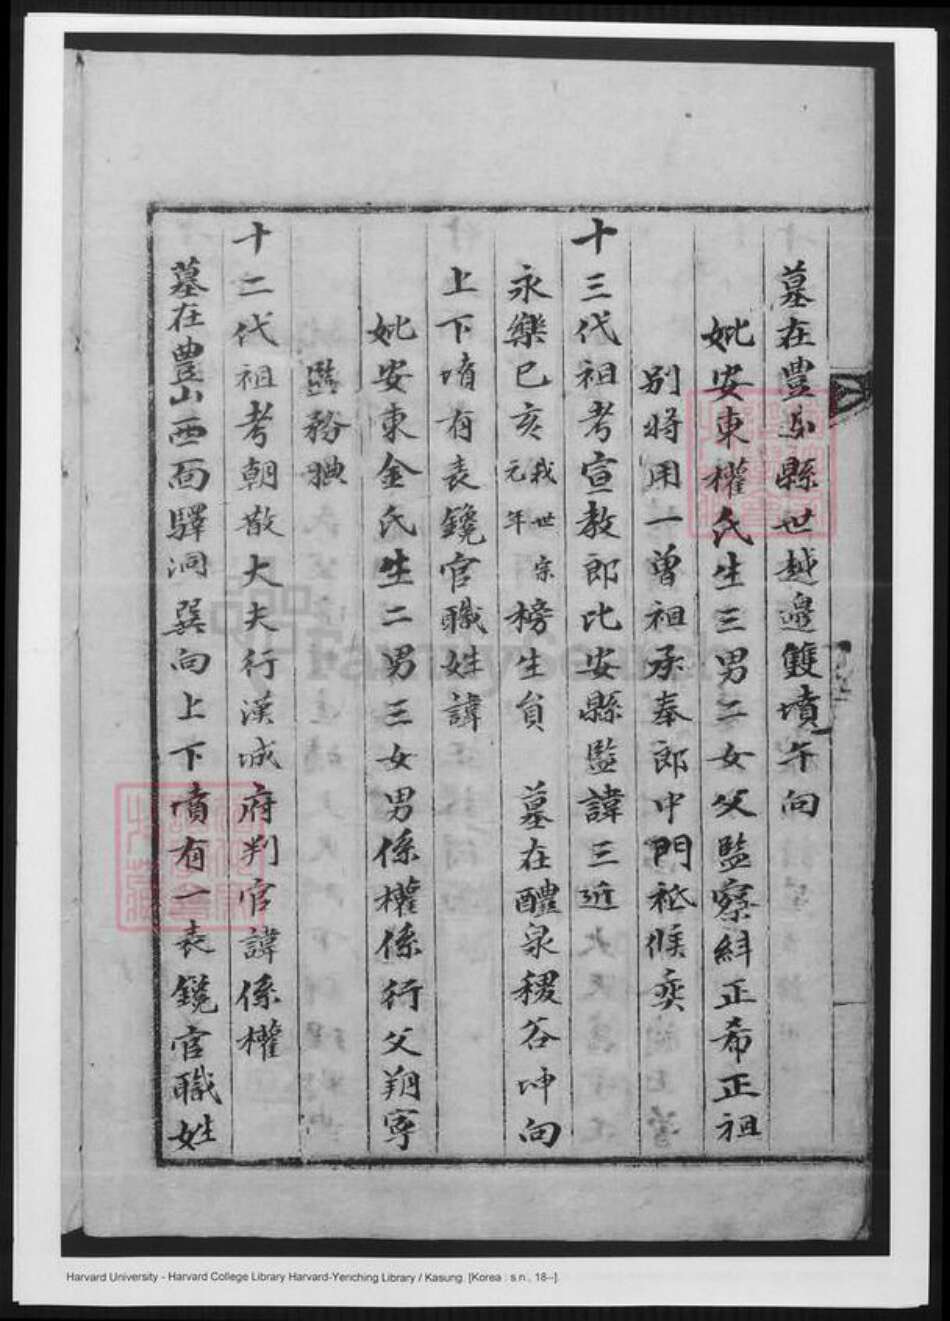 墓在豊山縣世越邊雙墳午向
妣安東權氏生三男二女父監察糾正希正祖
別將用一曾祖承奉郎中門祗候奕
十三代祖考宣教郎比安縣監諱三近
永樂己亥我世宗元年榜生員 墓在醴泉稷谷坤向
上下墳有表鐫官職姓諱
妣安東金氏生二男三女男係權係行父翔寧
監務腆
十二代祖考朝散大夫行漢城府判官諱係權
墓在豊山西面驛洞巽向上下墳有一表鐫官職姓
Harvard University - Harvard College Library Harvard-Yenching Library / Kasung. [Korea : s.n., 18--].